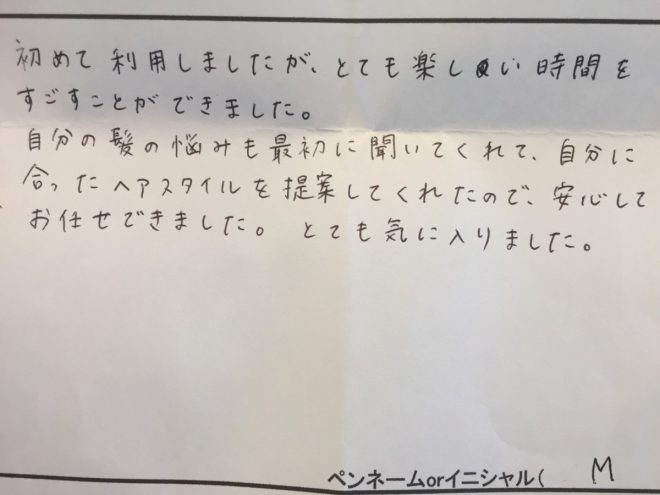 初めて利用しましたが、とても楽しい時間を
すごすことができました。
自分の髪の悩みも最初に聞いてくれて、自分に
合ったヘアスタイルを提案してくれたので、安心して
お任せできました。 とても気に入りました。
ペンネームorイニシャル( M